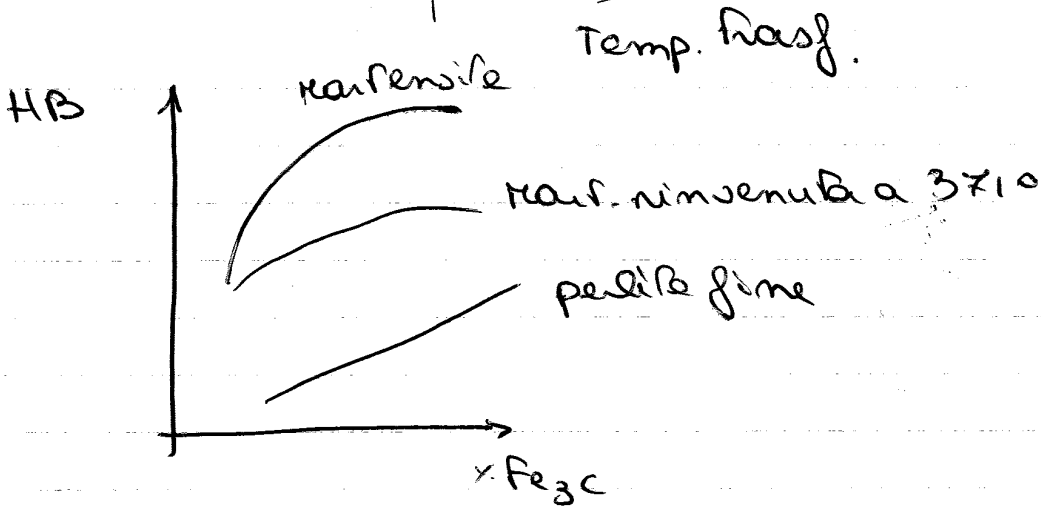 Temp. Trasf.
HB
martensite
mart. rinvenuta a 371°
perlite fine
% Fe3C